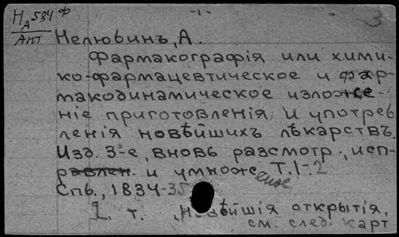 НА 534 ф
Апт
-1-
3
Нелюбинъ, А.
Фармакографія или хими-
ко-фармацевтическое и фар-
макодинамическое изложе-
ніе приготовленія и употреб
ленія новѣйшихъ лѣкарствъ.
Изд. 3-е, вновь разсмотр., исп-
равлен. и умноженное Т.1-2
Спб., 1834-35
1 т. Новѣйшія открытія,
см. след. карт